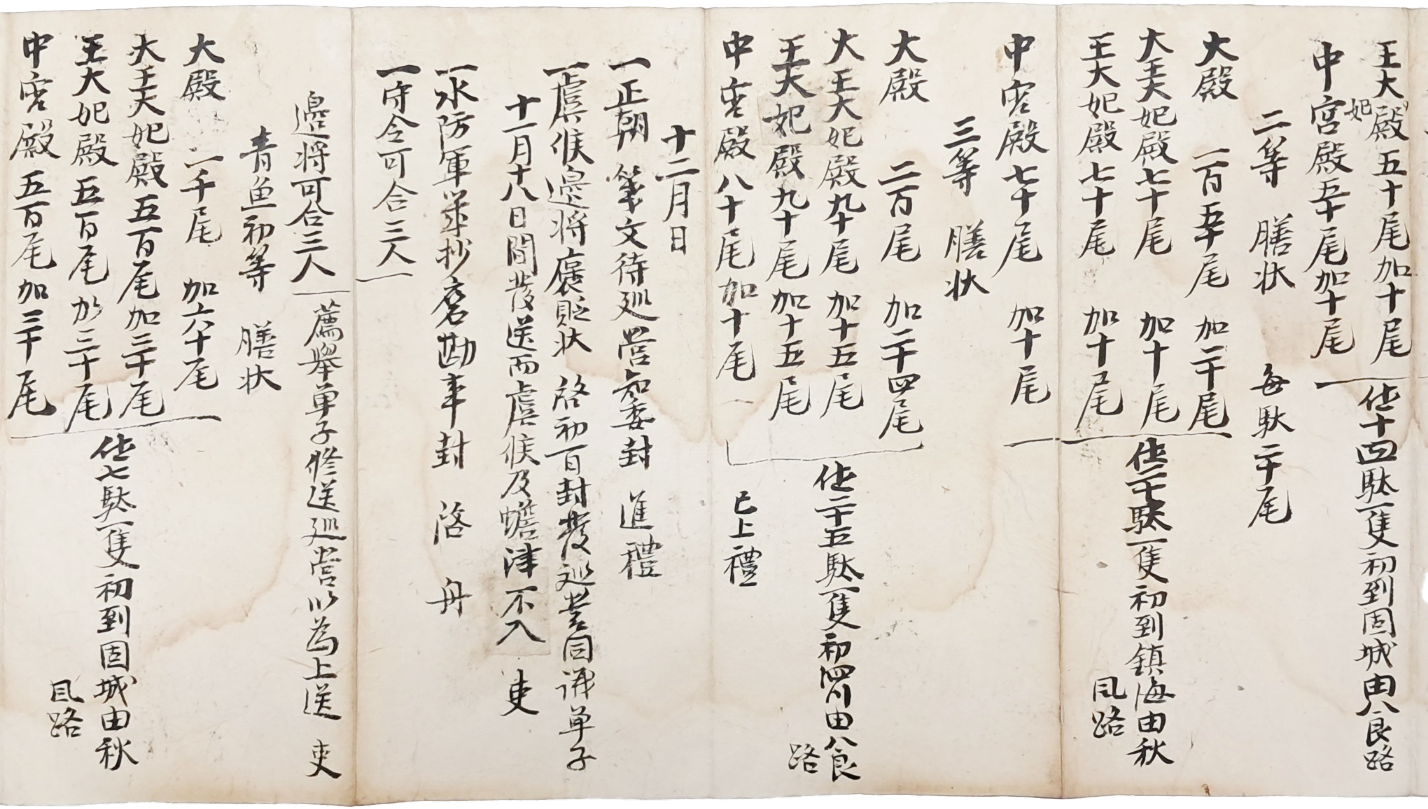 王大妃殿五十尾加十尾
中宮殿五十尾加十尾
仕十四駄一隻初到固城由八良路
二等 膳状 每駄二千尾
大殿 一百五十尾 加二十尾
大王大妃殿七十尾 加十尾
王大妃殿七十尾 加十尾
中宮殿七十尾 加十尾
仕二十駄一隻初到鎮海由秋
風路
三等 膳状
大殿 二百尾 加二十四尾
大王大妃殿九十尾 加十五尾
王大妃殿九十尾 加十五尾
中宮殿八十尾加十尾
仕二十五駄一隻初泗川由八良
路
已上禮
十二月日
一正朝 箋文待巡營知委封 進禮
一虞候邊將褒貶状 啓初一日封發巡營同議單子
十一月十八日間發送而虞候及蟾津不入 吏
一水防軍並抄磨勘事封 啓 舟
一守令可合三人
邊將可合三人
薦擧單子修送巡營以為上送 吏
青魚初等 膳状
大殿 一千尾 加六十尾
大王大妃殿五百尾加三十尾
王大妃殿 五百尾加三十尾
中宮殿 五百尾加三十尾
仕七駄一隻初到固城由秋
風路